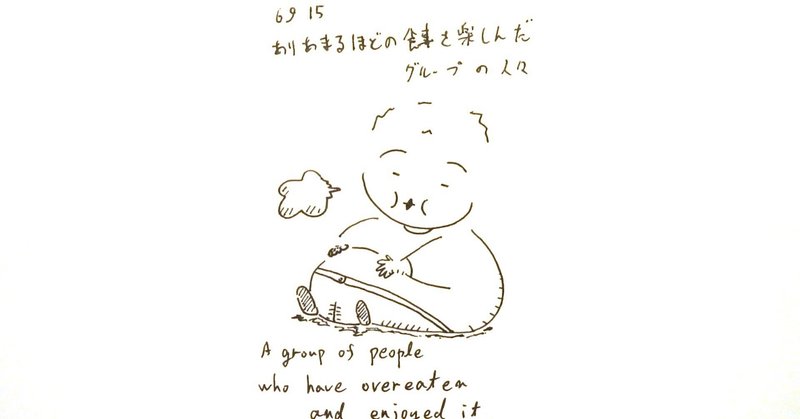 69 15
ありあまるほどの食事を楽しんだ
グループの人々
A group of people
who have overeaten
and enjoyed it